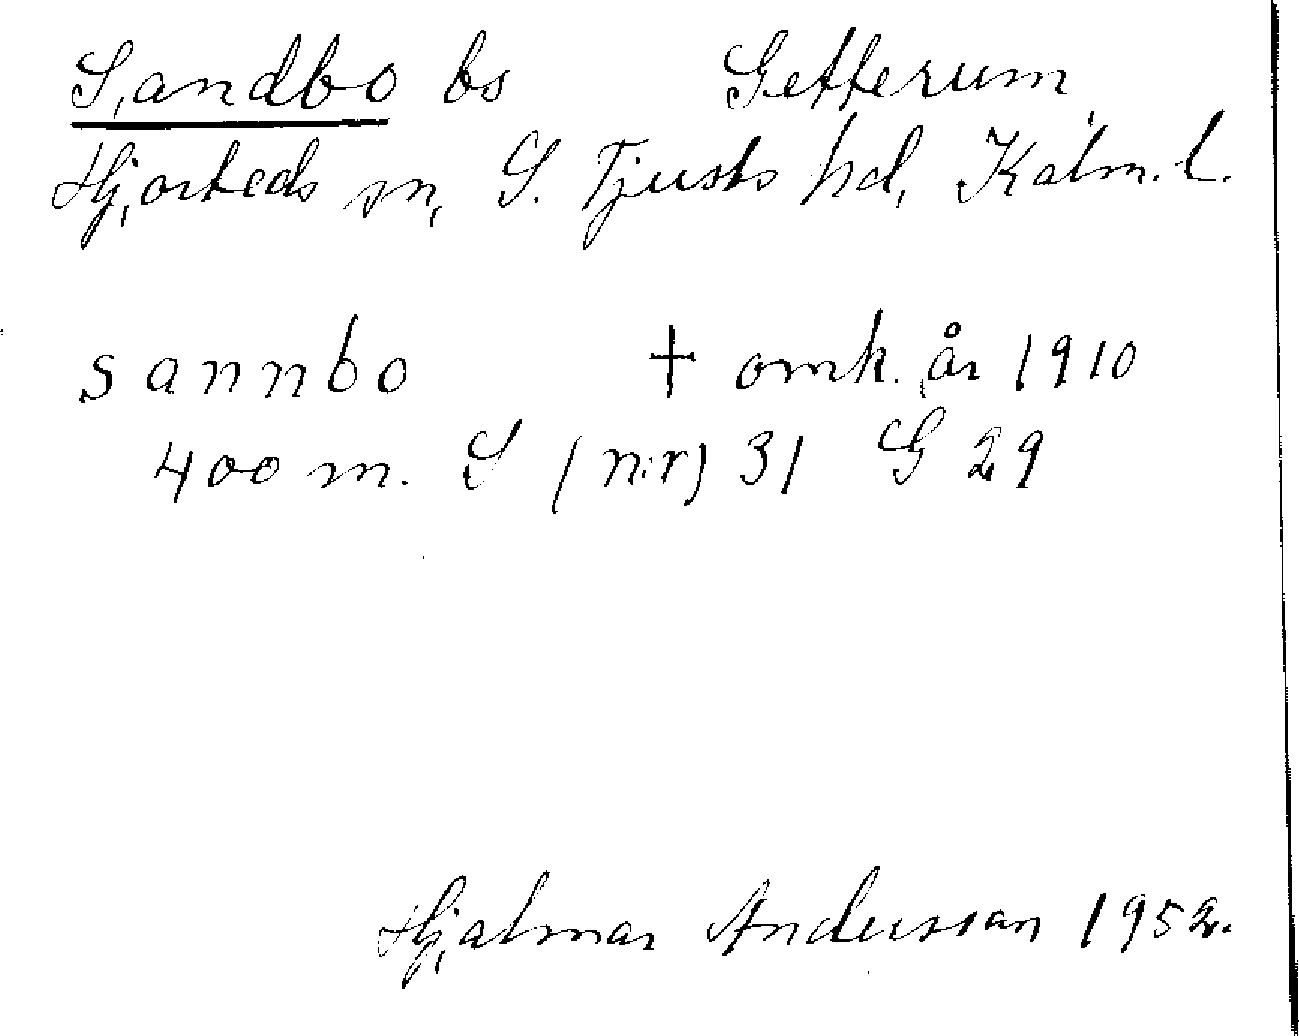 Sandbo bs Getterum
Hjorteds sn, S. Tjusts hd, Kalm. l.
sannbo † omk. år 1910
400 m. S (n:r) 31 G 29
Hjalmar Andersson 1952.